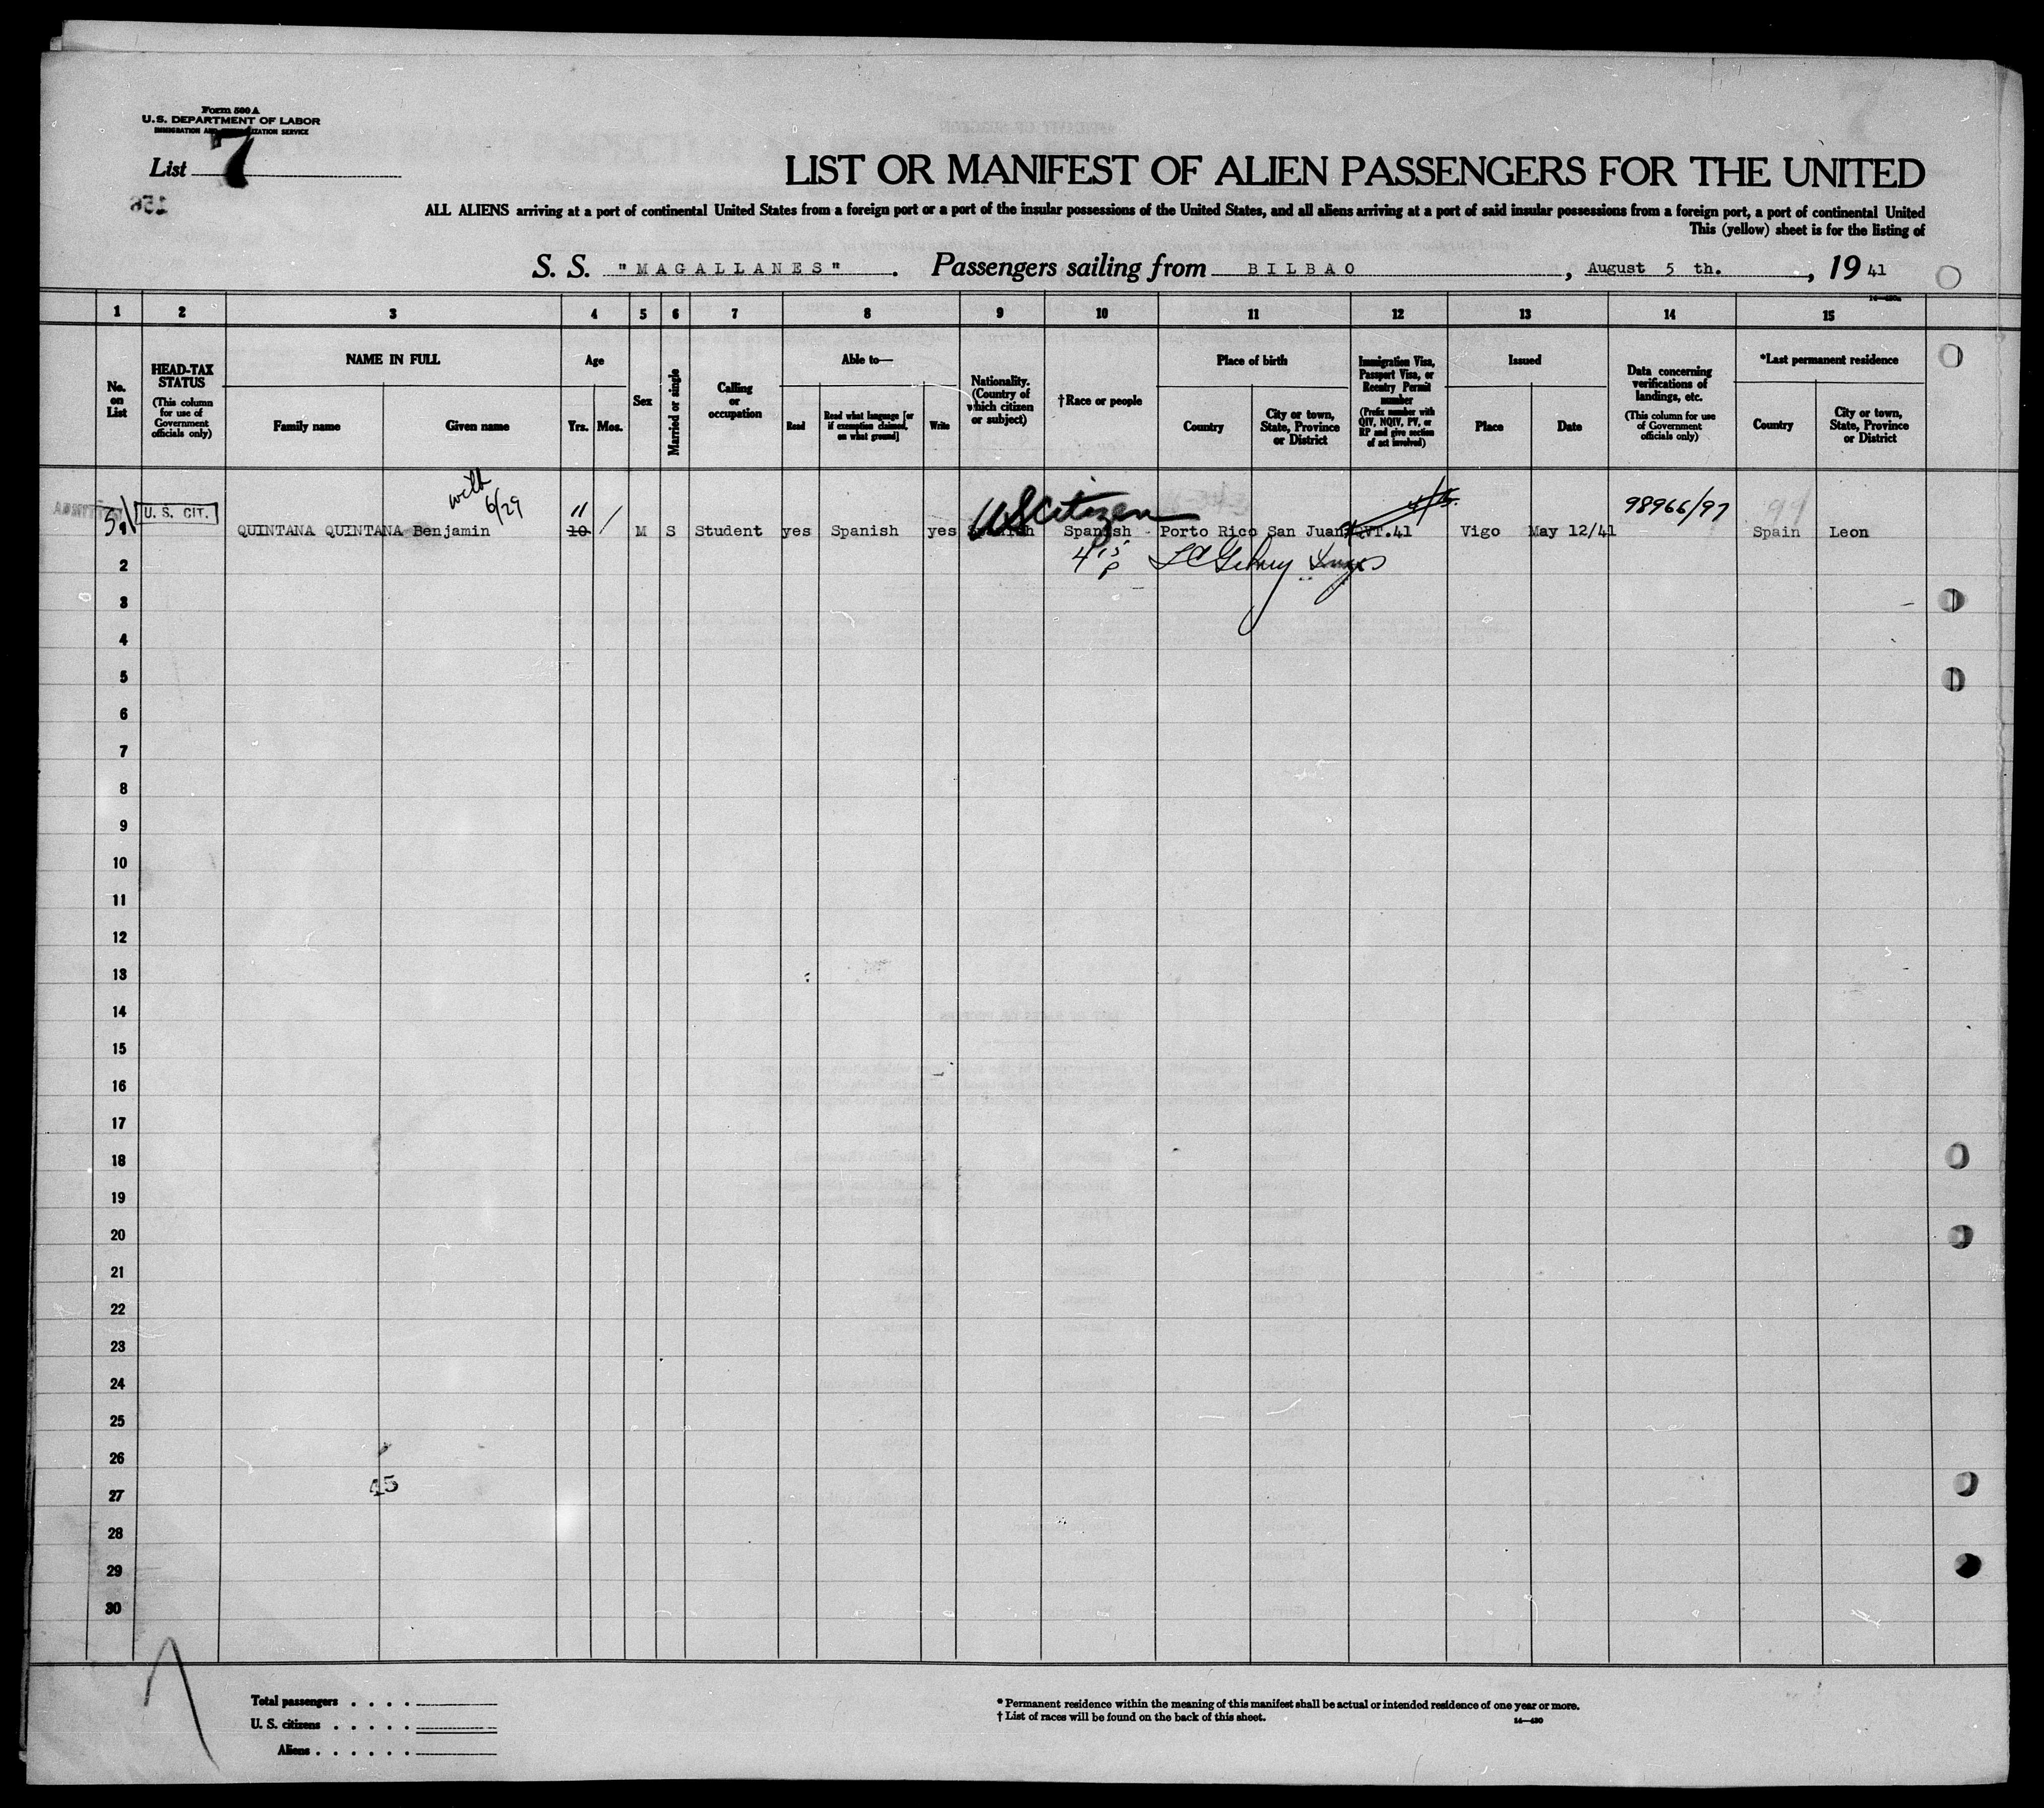 Form 500 A
U.S. DEPARTMENT OF LABOR
IMMIGRATION AND NATURALIZATION SERVICE
List 7
156
LIST OR MANIFEST OF ALIEN PASSENGERS FOR THE UNITED
ALL ALIENS arriving at a port of continental United States from a foreign port or a port of the insular possessions of the United States, and all aliens arriving at a port of said insular possessions from a foreign port, a port of continental United
This (yellow) sheet is for the listing of
S. S. "MAGALLANES". Passengers sailing from BILBAO, August 5 th., 19 41
1 2 3 4 5 6 7 8 9 10 11 12 13 14 15
No. on List
HEAD-TAX STATUS (This column for use of Government officials only)
NAME IN FULL
Family name
Given name
Age
Yrs.
Mos.
Sex
Married or single
Calling or occupation
Able to—
Read
Read what language [or if exemption claimed, on what ground]
Write
Nationality. (Country of which citizen or subject)
†Race or people
Place of birth
Country
City or town, State, Province or District
Immigration Visa, Passport Visa, or Reentry Permit number (Prefix number with QIV, NQIV, PV, or RP and give section of act involved)
Issued
Place
Date
Data concerning verifications of landings, etc. (This column for use of Government officials only)
*Last permanent residence
Country
City or town, State, Province or District
with 6/29
11
US Citizen
98966/97
99
U. S. CIT. QUINTANA QUINTANA Benjamin 10 M S Student yes Spanish yes Spanish Spanish Porto Rico San Juan VT.41 Vigo May 12/41 Spain Leon
2
3
4
5
6
7
8
9
10
11
12
13
14
15
16
17
18
19
20
21
22
23
24
25
26
45
27
28
29
30
Total passengers . . . .
U. S. citizens . . . . .
Aliens . . . . . .
* Permanent residence within the meaning of this manifest shall be actual or intended residence of one year or more.
† List of races will be found on the back of this sheet.
14—430